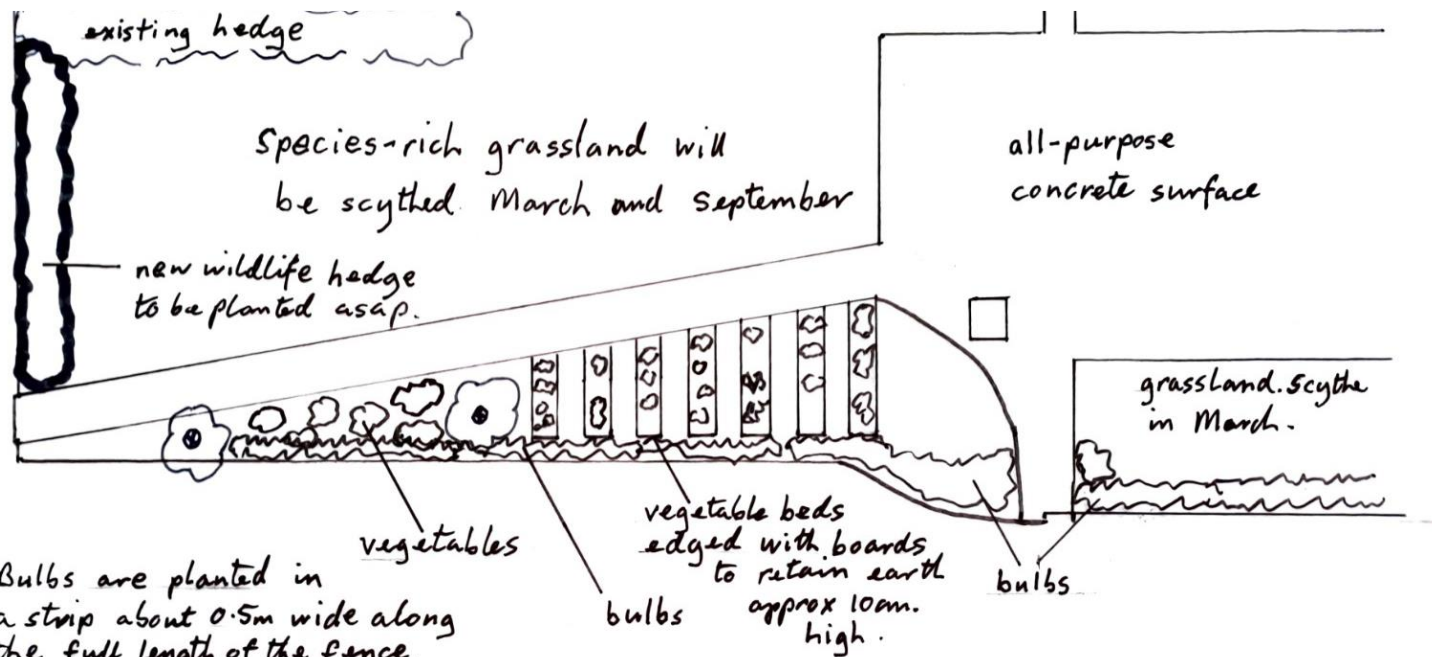 existing hedge
Species-rich grassland will
be scythed March and September
all-purpose
concrete surface
new wildlife hedge
to be planted asap.
grassland. Scythe
in March.
vegetables
bulbs
vegetable beds
edged with boards
to retain earth
approx 10cm.
high.
bulbs
Bulbs are planted in
a strip about 0.5m wide along
the full length of the fence